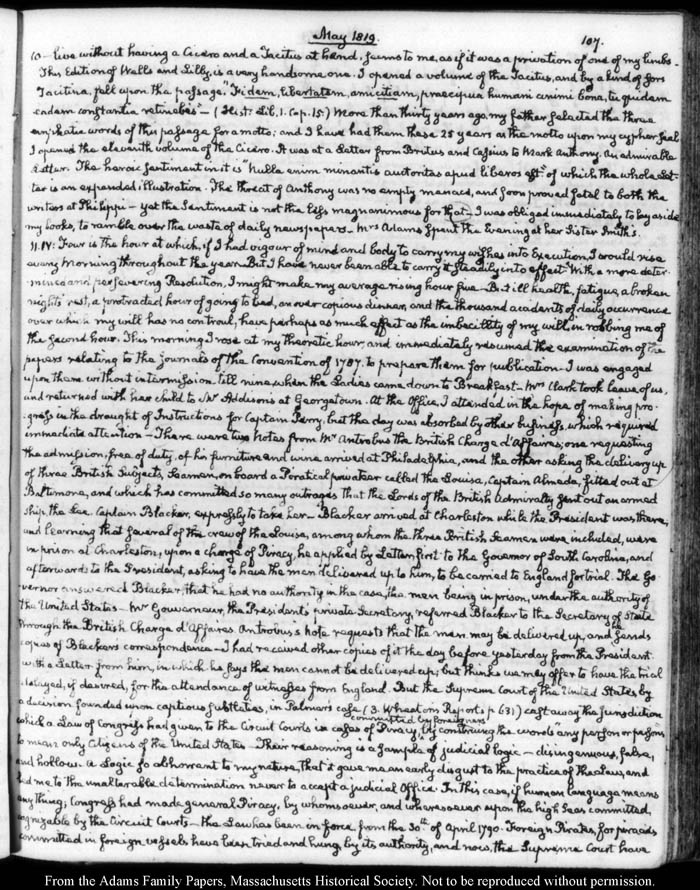 May 1819.
107.
10 — live without having a Cicero and a Tacitus at hand, seems to me, as if it was a privation of one of my limbs.
This Edition of Wells and Lilly, is a very handsome one. I opened a volume of the Tacitus, and by a kind of Sors
Tacitina, fell upon the passage, "Fidem, libertatem, amicitiam, praecipua humani animi bona, tu quidem
eadem constantia retinebis" — (Hist. Lib. 1. Cap. 15.) More than thirty years ago, my father selected the three
emphatic words of this passage for a motto; and I have had them these 25 years as the motto upon my cypher seal
I opened the eleventh volume of the Cicero. It was at a Letter from Brutus and Cassius to Mark Anthony. An admirable
Letter. The heroic sentiment in it is "Nulla enim minantis auctoritas apud liberos est." of which the whole Let-
ter is an expanded illustration. The threat of Anthony was no empty menace, and soon proved fatal to both the
writers at Philippi — yet the sentiment is not the less magnanimous for that — I was obliged immediately to lay aside
my books, to ramble over the waste of daily newspapers. Mrs Adams spent the Evening at her Sister Smith's.
11. IV: Four is the hour at which, if I had vigour of mind and body to carry my wishes into Execution, I would rise
every morning throughout the year. But I have never been able to carry it steadily into effect. With a more deter-
mined and persevering Resolution, I might make my average rising hour five — But ill health, fatigue, a broken
night's rest, a protracted hour of going to bed, an over copious dinner, and the thousand accidents of daily occurrence
over which my will has no controul, have perhaps as much effect as the imbecillity of my will, in robbing me of
the second hour. This morning I rose at my theoretic hour, and immediately resumed the examination of the
papers relating to the journals of the Convention of 1787. to prepare them for publication. I was engaged
upon them without intermission till nine, when the Ladies came down to Breakfast — Mrs Clark took leave of us,
and returned with her child to Mr Addison's at Georgetown. At the Office, I attended in the hope of making pro-
gress in the draught of Instructions for Captain Perry, but the day was absorbed by other business, which required
immediate attention — There were two Notes from Mr Antrobus the British Chargé d'Affaires; one requesting
the admission, free of duty, of his furniture and wine arrived at Philadelphia, and the other asking the delivery up
of three British Subjects, Seamen, on board a Piratical privateer called the Louisa, Captain Almeda, fitted out at
Baltimore, and which has committed so many outrages that the Lords of the British Admiralty sent out an armed
ship, the Lee, Captain Blacker, expressly to take her — Blacker arrived at Charleston while the President was there,
and learning that several of the crew of the Louisa, among whom the three British Seamen were included, were
in prison at Charleston, upon a charge of Piracy, he applied by Letter first to the Governor of South Carolina, and
afterwards to the President, asking to have the men delivered up to him, to be carried to England for trial. The Go-
vernor answered Blacker, that he had no authority in the case, the men being in prison, under the authority of
the United States — Mr Gouverneur, the President's private Secretary, referred Blacker to the Secretary of State
through the British Chargé d'Affaires. Antrobus's note requests that the men may be delivered up, and sends
copies of Blacker's correspondence — I had received other copies of it the day before yesterday from the President
with a Letter from him, in which he says the men cannot be delivered up; but thinks we may offer to have the trial
delayed, if desired, for the attendance of witnesses from England. But the Supreme Court of the United States by
a decision founded upon captious subtleties, in Palmer's case (3. Wheaton's Reports p 631) cast away the jurisdiction
which a Law of Congress had given to the Circuit Courts in cases of Piracy, committed by foreigners by construing the words "any person or persons"
to mean only Citizens of the United States — Their reasoning is a sample of judicial logic — disingenuous, false,
and hollow. A Logic so abhorrent to my nature, that it gave me an early disgust to the practice of the Law, and
led me to the unalterable determination never to accept a judicial Office. In this case, if human language means
any thing, Congress had made general Piracy, by whomsoever, and wheresoever upon the high Seas committed,
cognizable by the Circuit Courts — the Law has been in force from the 30th of April 1790. Foreign Pirates, for piracies
committed in foreign vessels have been tried and hung by its authority, and now, the Supreme Court have
From the Adams Family Papers, Massachusetts Historical Society. Not to be reproduced without permission.